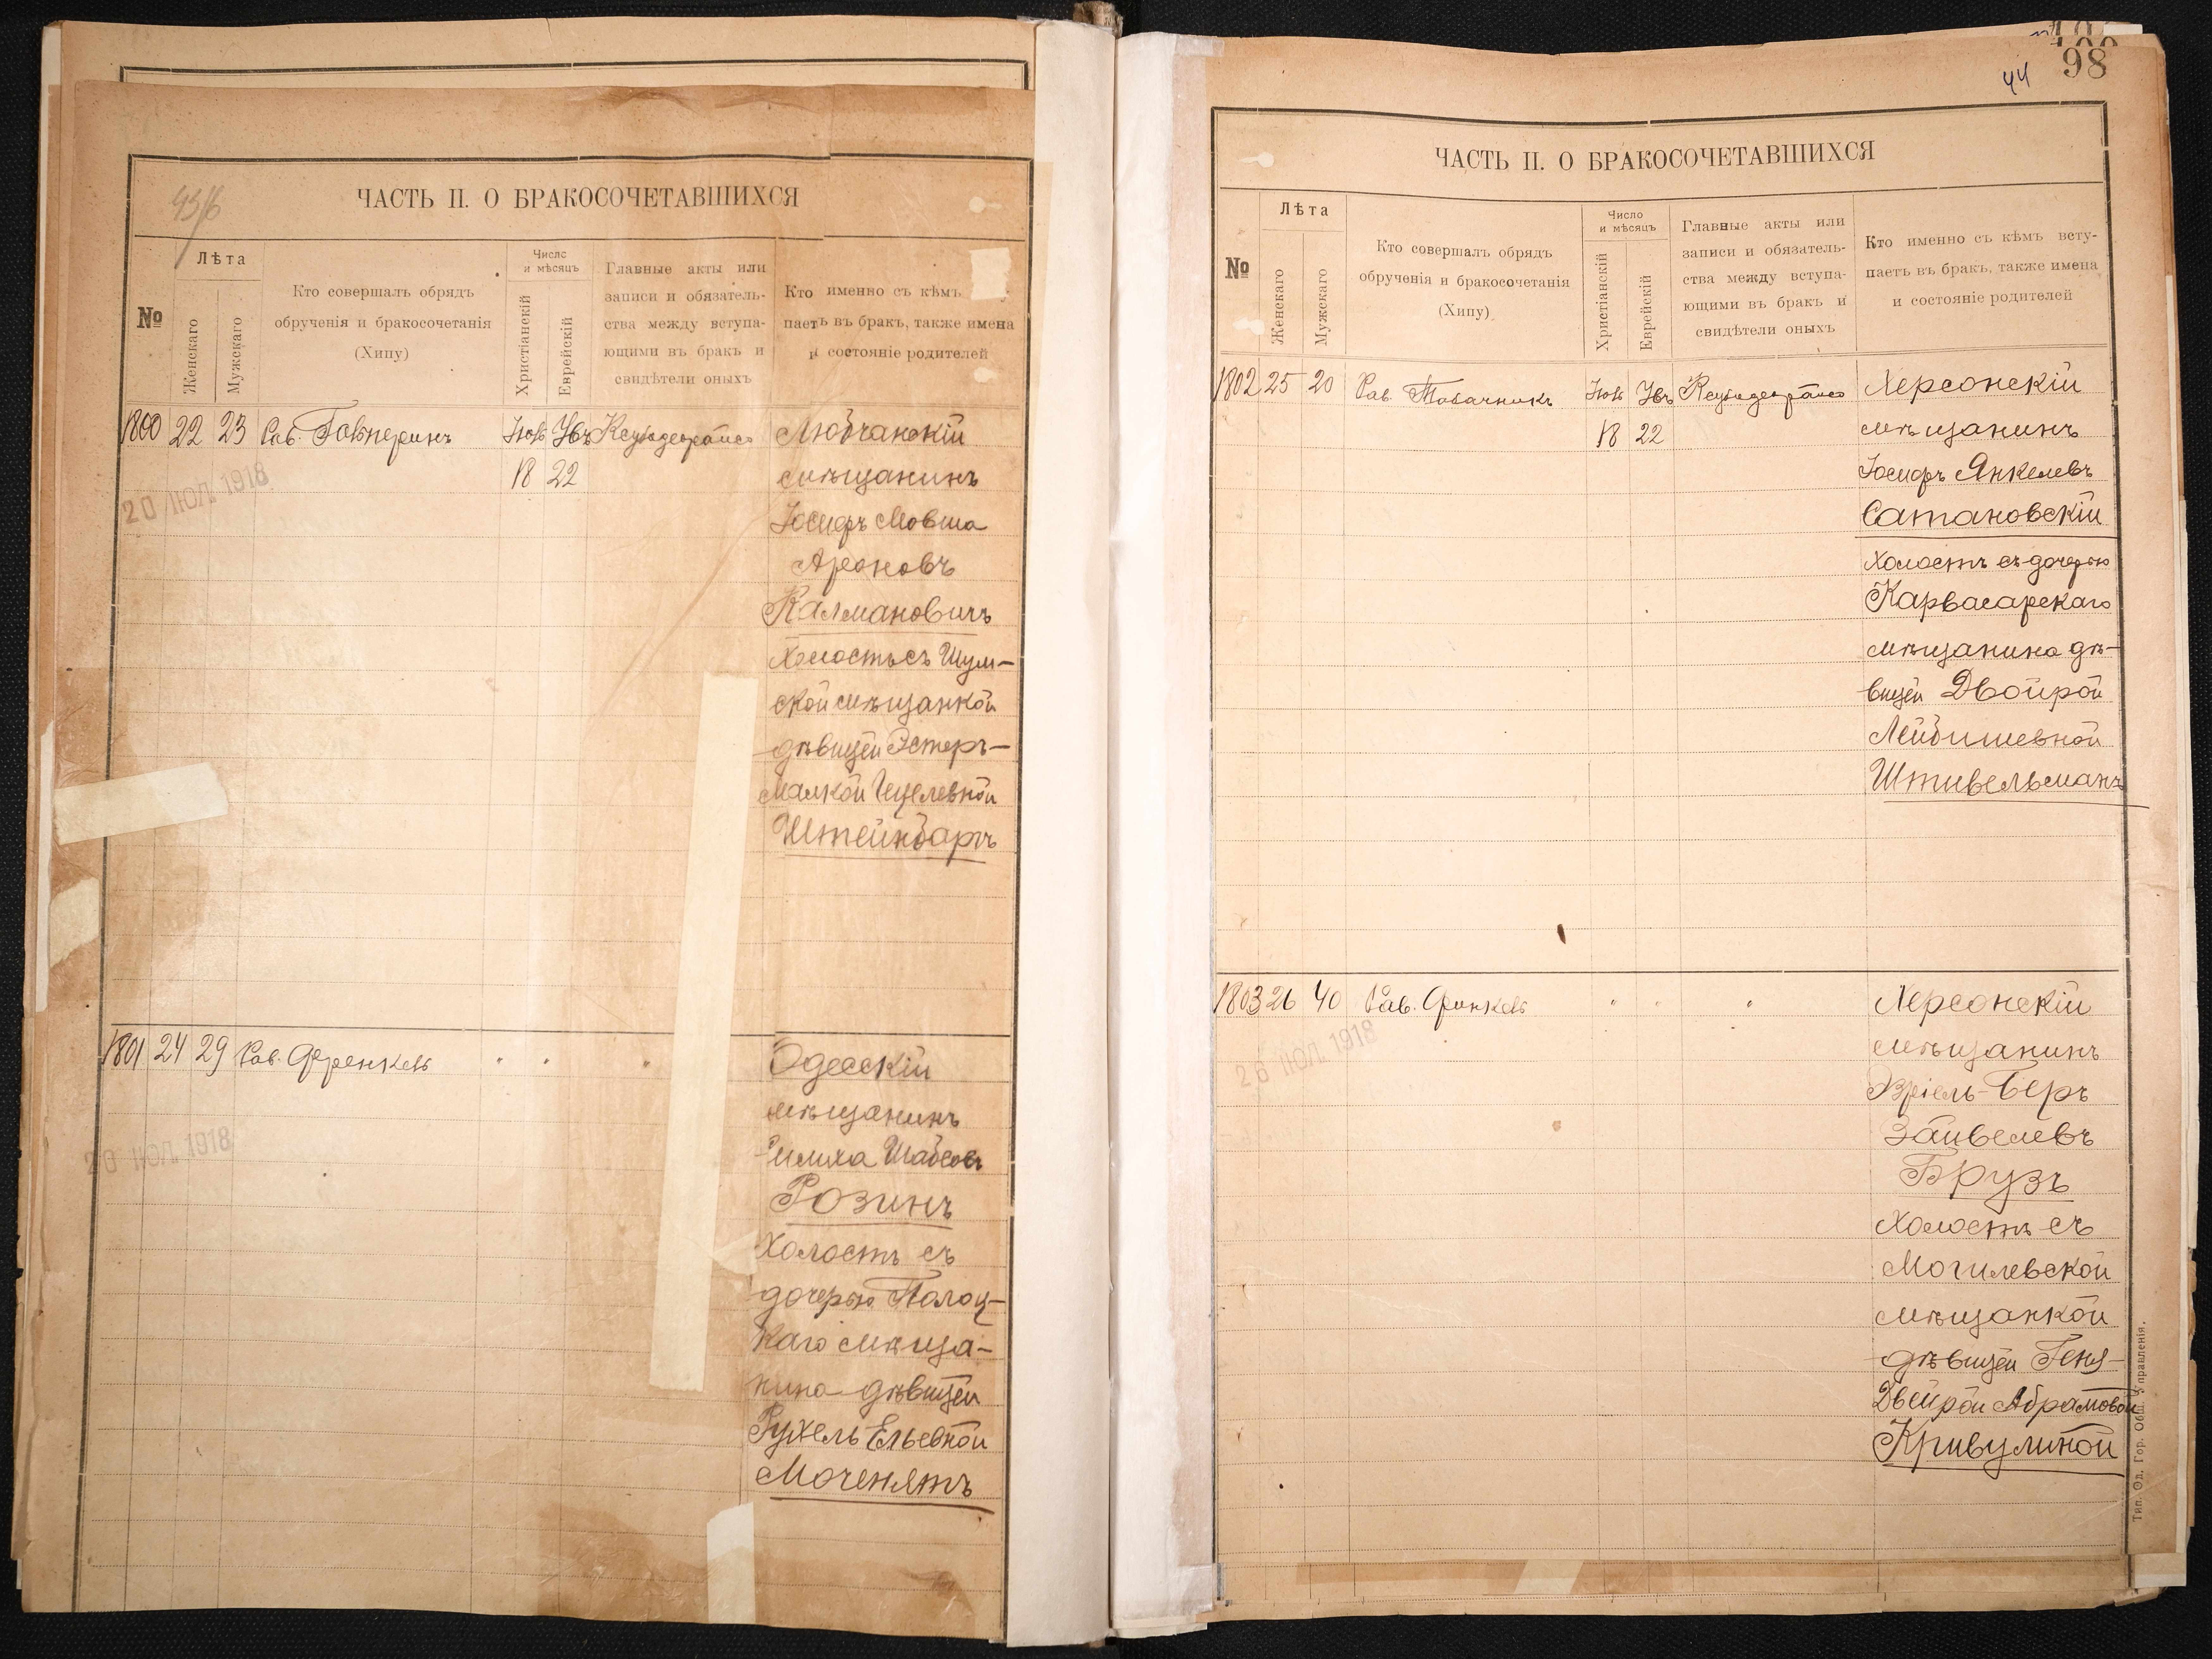 ЧАСТЬ II. О БРАКОСОЧЕТАВШИХСЯ
№
Лѣта
Женскаго
Мужскаго
Кто совершалъ обрядъ
обрученія и бракосочетанія
(Хипу)
Число
и мѣсяцъ
Христіанскій
Еврейскій
Главные акты или
записи и обязатель-
ства между вступа-
ющими въ бракъ и
свидѣтели оныхъ
Кто именно съ кѣмъ
паетъ въ бракъ, также имена
и состояніе родителей
1800 22 23 Рав. Гальперинъ
18 22
20 ІЮЛ. 1918
Любчанскій
мѣщанинъ
Іосифъ Мовша
Ароновъ
Калмановичъ
Холостъ съ Шум-
ской мѣщанкой
дѣвицей Эстеръ-
Малкой Гецелевной
Штейнбаргъ
1801 24 29 Рав. Френкель " " "
ІЮЛ. 1918
Одесскій
мѣщанинъ
Симха Шабсовъ
Розинъ
Холостъ съ
дочерью Полоц-
каго мѣща-
нина дѣвицей
Рухель Ельевной
Моченятъ
44
98
ЧАСТЬ II. О БРАКОСОЧЕТАВШИХСЯ
№
Лѣта
Женскаго
Мужскаго
Кто совершалъ обрядъ
обрученія и бракосочетанія
(Хипу)
Число
и мѣсяцъ
Христіанскій
Еврейскій
Главные акты или
записи и обязатель-
ства между вступа-
ющими въ бракъ и
свидѣтели оныхъ
Кто именно съ кѣмъ всту-
паетъ въ бракъ, также имена
и состояніе родителей
1802 25 20 Рав. Табачникъ
18 22
Херсонскій
мѣщанинъ
Іосифъ Янкелевъ
Сатановскій
Холостъ съ дочерью
Карвасарскаго
мѣщанина дѣ-
вицей Двойрой
Лейбишевной
Штивельманъ
1803 26 40 Рав. Финкель " " "
26 ІЮЛ. 1918
Херсонскій
мѣщанинъ
Эзріель-Беръ
Зайвелевъ
Брузъ
Холостъ съ
Могилевской
мѣщанкой
дѣвицей Геня-
Двейрой Абрамовой
Кривулиной
Тип. Од. Гор. Общ. Управленія.